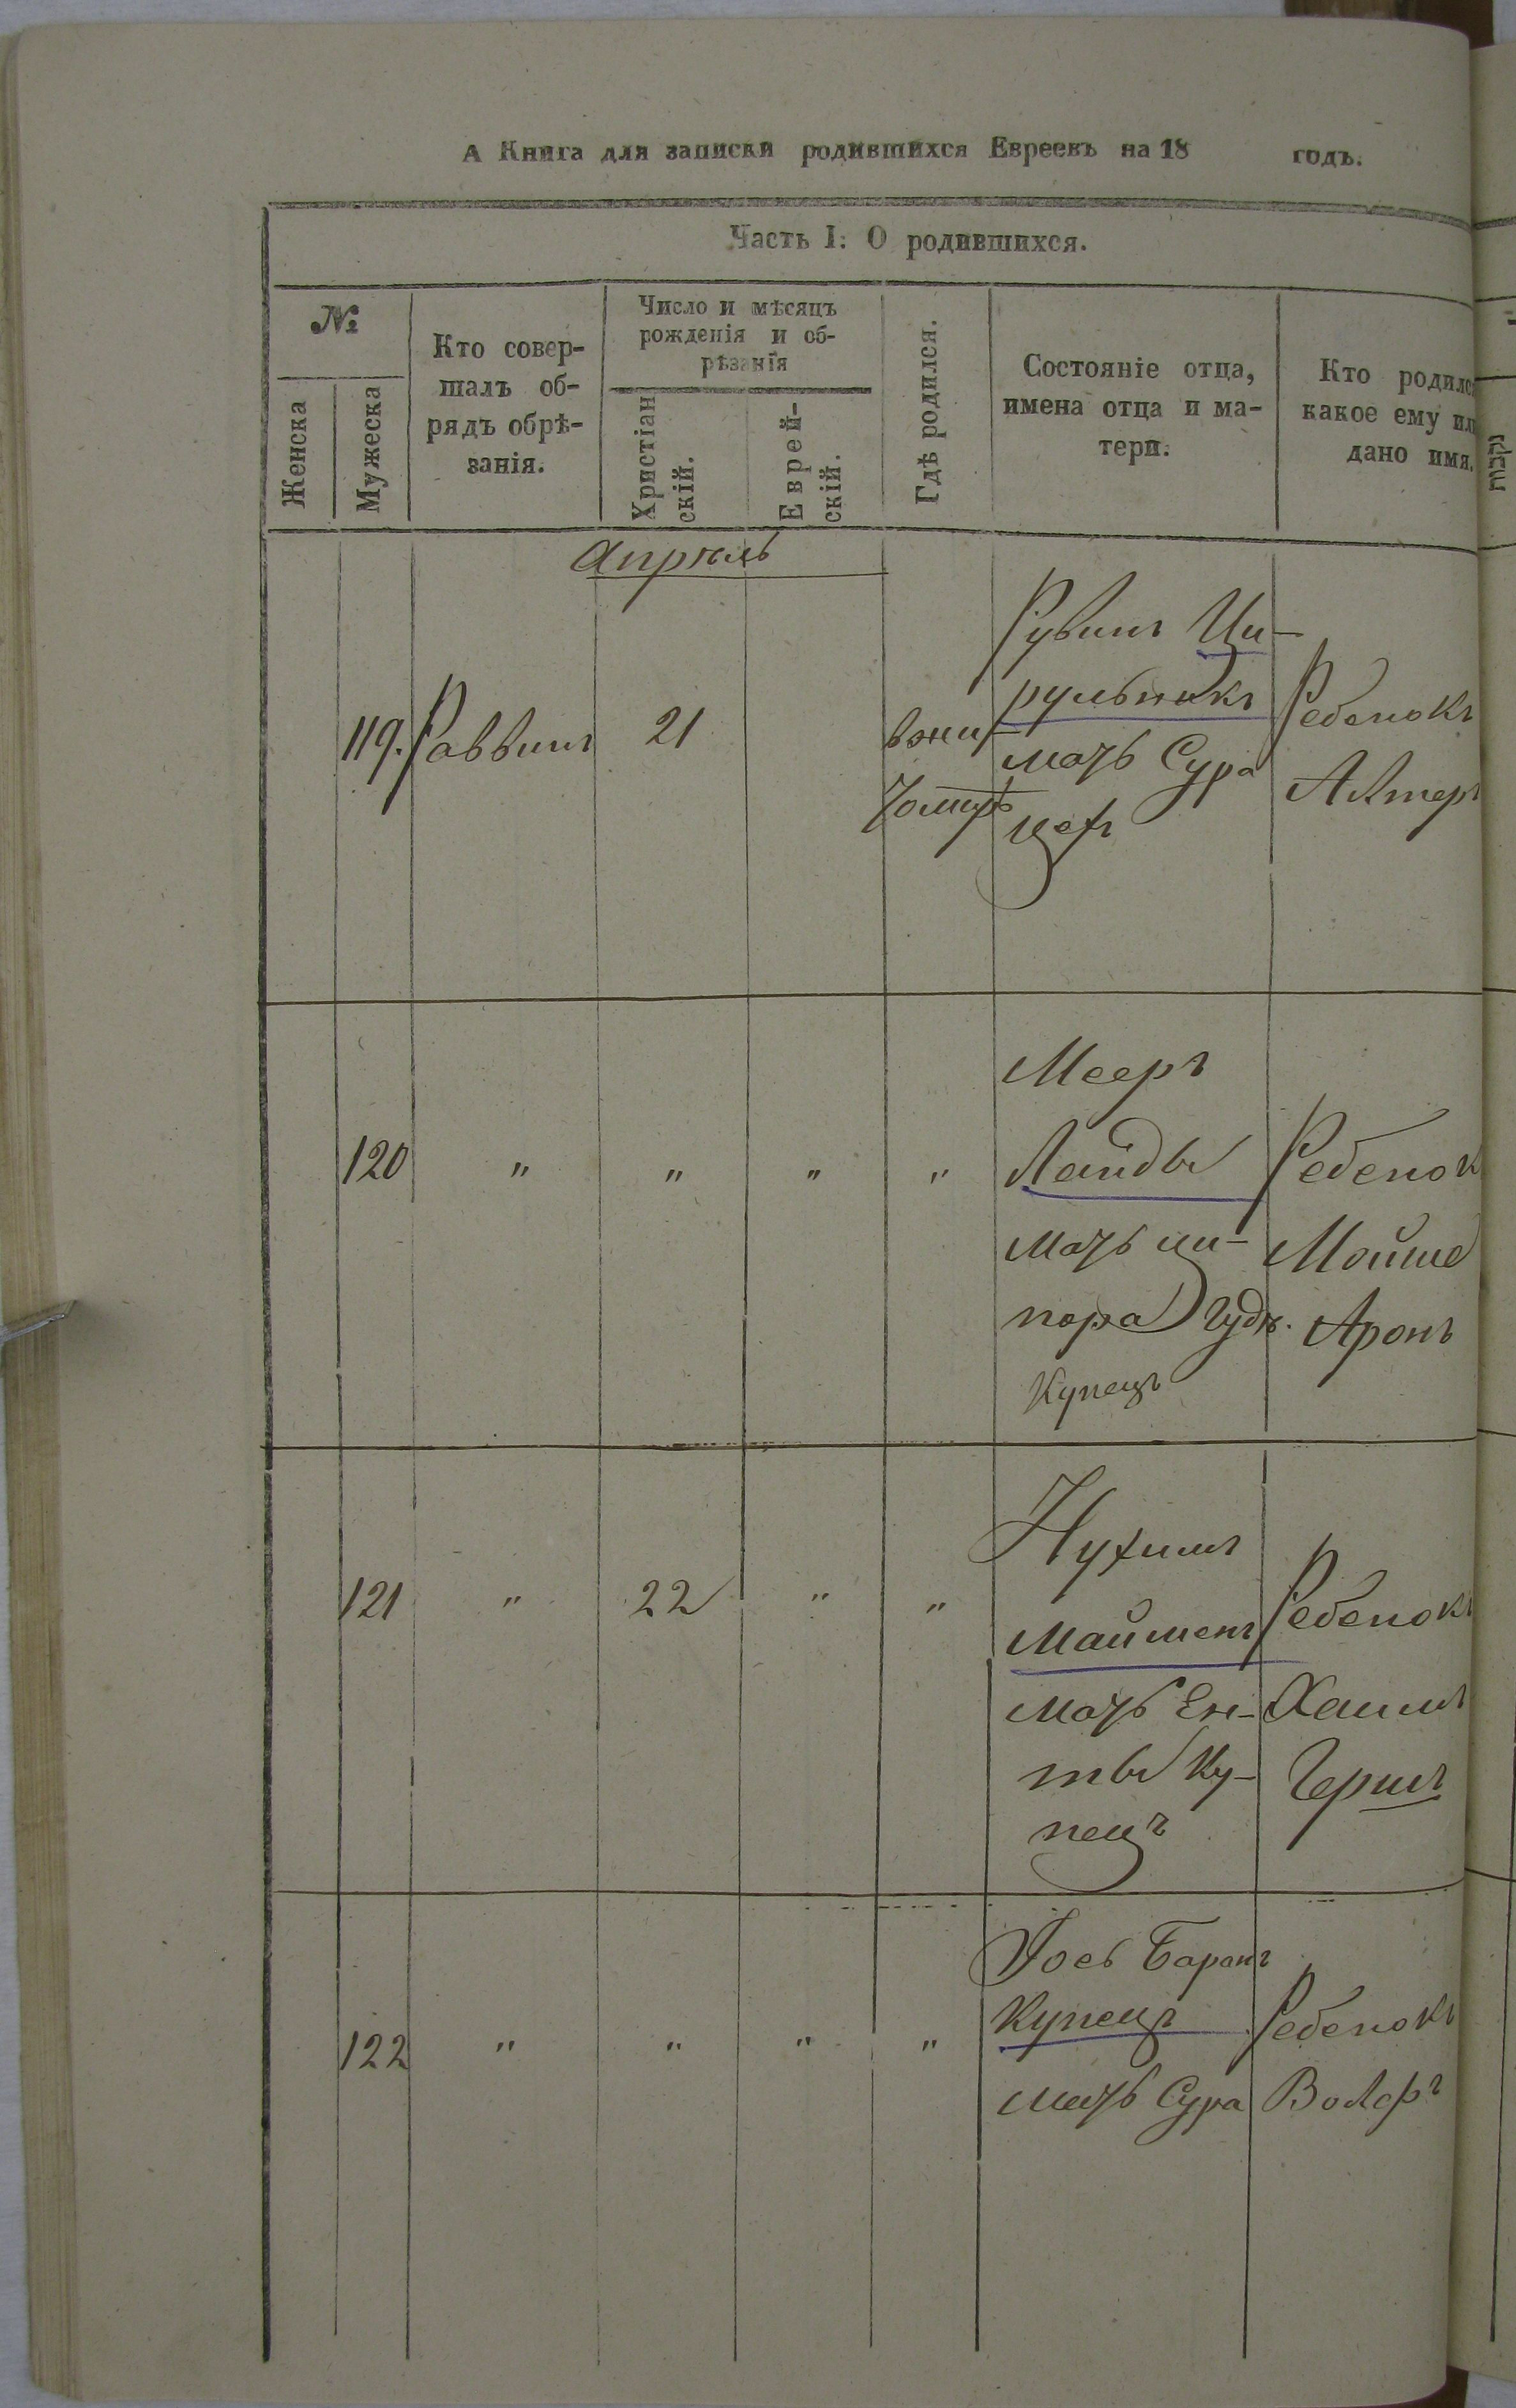 А Книга для записки родившихся Евреевъ на 18 годъ.
Часть I. О родившихся.
№
Женска
Мужеска
Кто совер-
шалъ об-
рядъ обрѣ-
занія.
Число и мѣсяцъ
рожденія и об-
рѣзанія
Христіан
скій.
Еврей-
скій.
Гдѣ родился.
Состояніе отца,
имена отца и ма-
тери.
Кто родилс
какое ему ил
дано имя.
Апрѣль
119. Раввинъ 21
Рувинъ Ци-
рульникъ
мать Сура
Ребенокъ
Алтеръ
120 " " " "
Мееръ
Лайды
мать Ци-
пора Гудя.
Купецъ
Ребенок
Мойше
Аронъ
121 " 22 " "
Нухимъ
Майменъ
мать Ен-
ты Ку-
пецъ
Ребенокъ
Хаимъ
Гершъ
122 " " " "
Іось Баранъ
Купецъ
мать Сура
Ребенокъ
Волфъ